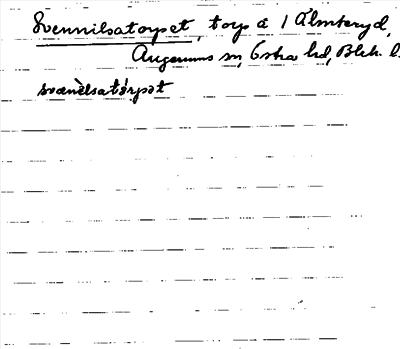 Svennilsatorpet, torp å 1 Älmteryd,
Augerums sn, Östra hd, Blek. l.
svanèlsatårpət